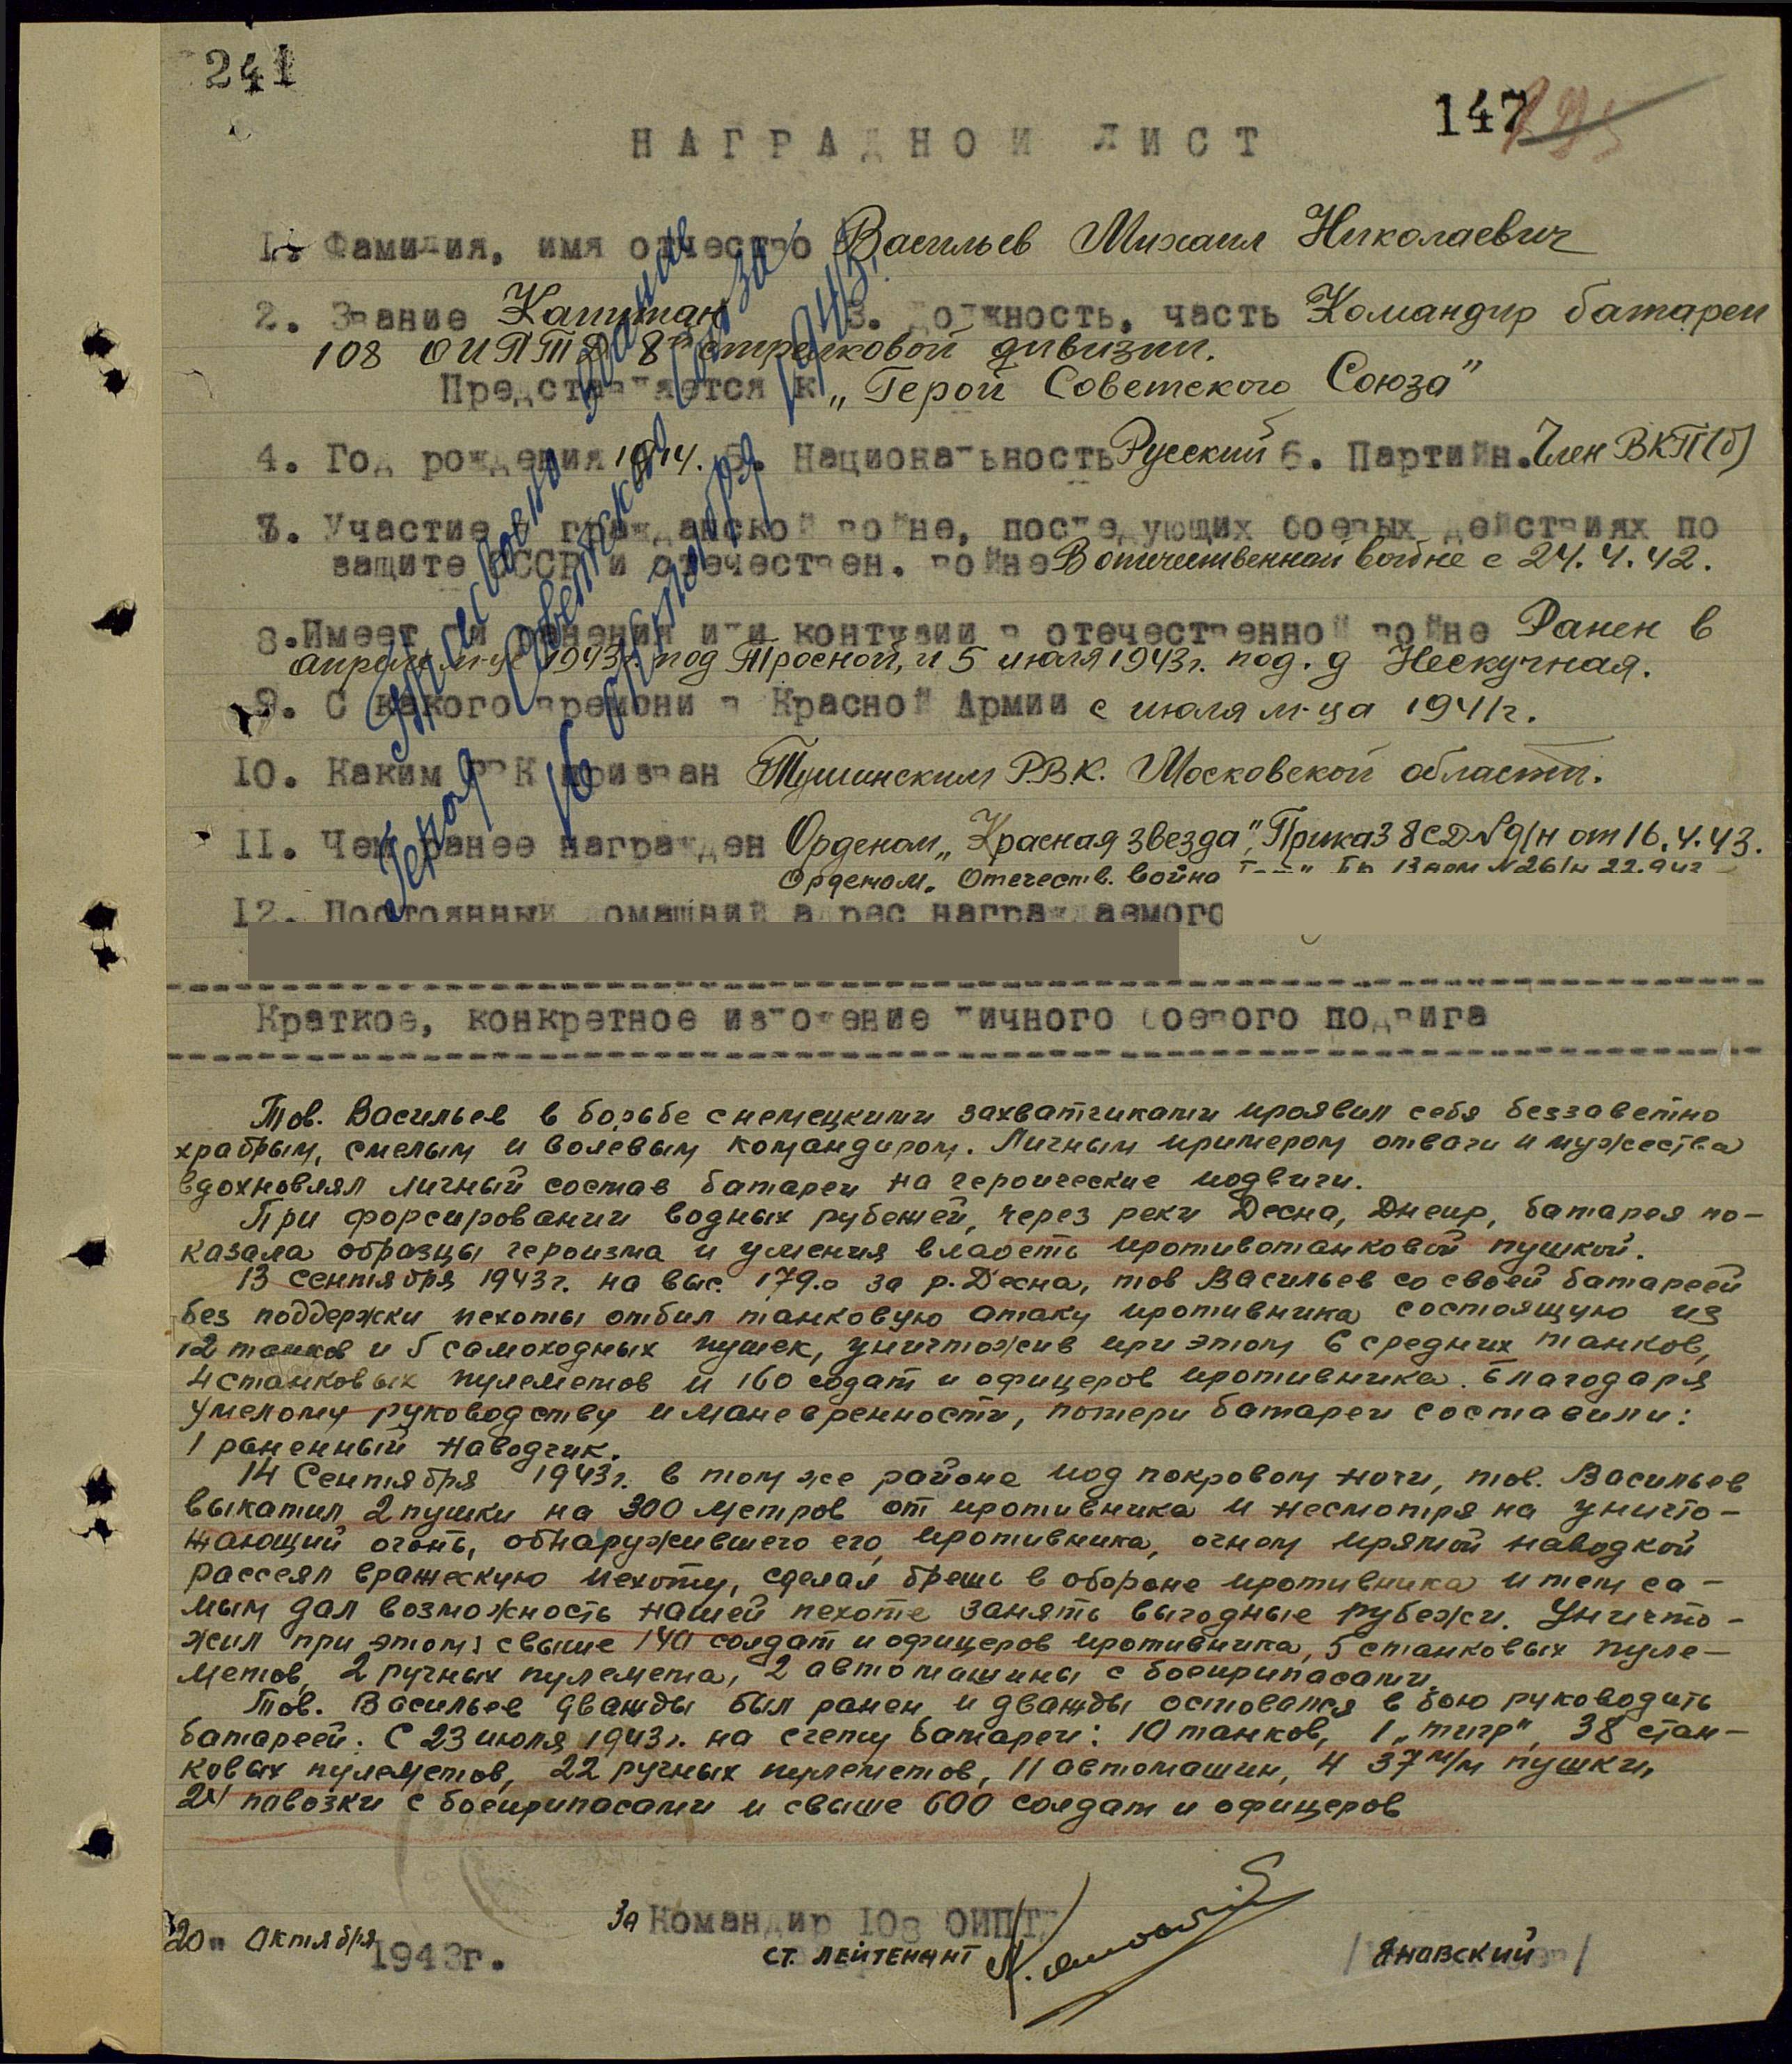 241
147
НАГРАДНОЙ ЛИСТ
1. Фамилия, имя отчество Васильев Михаил Николаевич
2. Звание Капитан 3. Должность, часть Командир батареи
108 ОИПТД 8й стрелковой дивизии.
Представляется к „Герой Советского Союза"
4. Год рождения 1914. 5. Национальность Русский 6. Партийн. Член ВКП(б)
7. Участие в гражданской войне, последующих боевых действиях по
защите СССР и отечествен. войне В отечественной войне с 24.4.42.
8. Имеет ли ранения или контузии в отечественной войне Ранен в
апреле м-це 1943г. под Тросной, и 5 июля 1943г. под. д Нескучная.
9. С какого времени в Красной Армии с июля м-ца 1941г.
10. Каким РВК призван Тушинским Р.В.К. Московской области.
11. Чем ранее награжден Орденом „Красная звезда", Приказ 8СД №9/н от 16.4.43.
Орденом. Отечеств. война
12. Постоянный домашний адрес награждаемого
Присвоено звание
Героя Советского Союза
16 октября 1943г.
Краткое, конкретное изложение личного боевого подвига
Тов. Васильев в борьбе с немецкими захватчиками проявил себя беззаветно
храбрым, смелым и волевым командиром. Личным примером отваги и мужества
вдохновлял личный состав батареи на героические подвиги.
При форсировании водных рубежей, через реки Десна, Днепр, батарея по-
казала образцы героизма и умения владеть противотанковой пушкой.
13 сентября 1943г. на выс. 179.0 за р. Десна, тов Васильев со своей батареей
без поддержки пехоты отбил танковую атаку противника состоящую из
12 танков и 5 самоходных пушек, уничтожив при этом 6 средних танков,
4 станковых пулеметов и 160 содат и офицеров противника. Благодаря
умелому руководству и маневренности, потери батареи составили:
1 раненный наводчик.
14 Сентября 1943г. в том же районе под покровом ночи, тов. Васильев
выкатил 2 пушки на 300 метров от противника и несмотря на уничто-
жающий огонь, обнаружившего его, противника, огнем прямой наводкой
рассеял вражескую пехоту, сделал брешь в обороне противника и тем са-
мым дал возможность нашей пехоте занять выгодные рубежи. Уничто-
жил при этом: свыше 140 солдат и офицеров противника, 5 станковых пуле-
метов, 2 ручных пулемета, 2 автомашины с боеприпасами.
Тов. Васильев дважды был ранен и дважды оставался в бою руководить
батареей. С 23 июля 1943г. на счету батареи: 10 танков, 1 „тигр", 38 стан-
ковых пулеметов, 22 ручных пулеметов, 11 автомашин, 4 37 м/м пушки,
24 павозки с боеприпасами и свыше 600 солдат и офицеров
За Командир 108 ОИПТД
20" Октября 1943г.
ст. лейтенант /Яновский/